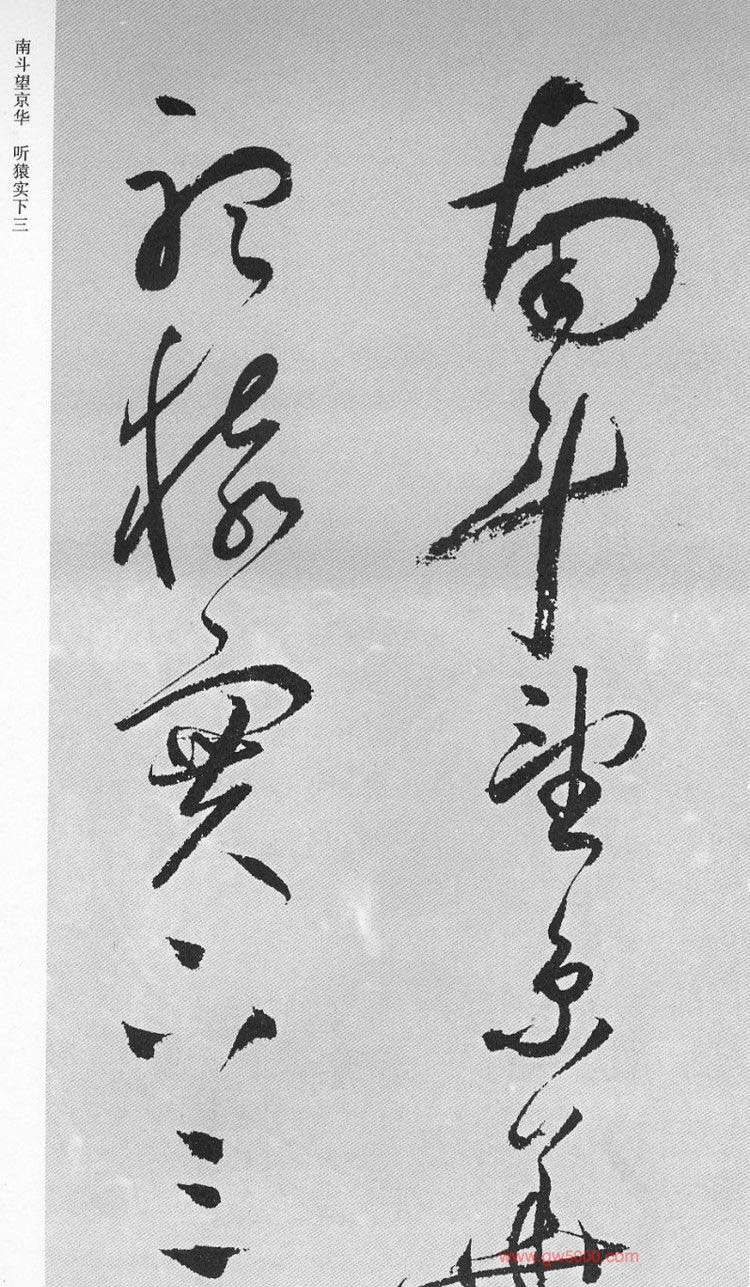 南斗望京華
聽猿實下三
南斗望京华 听猿实下三
www.gw5000.com